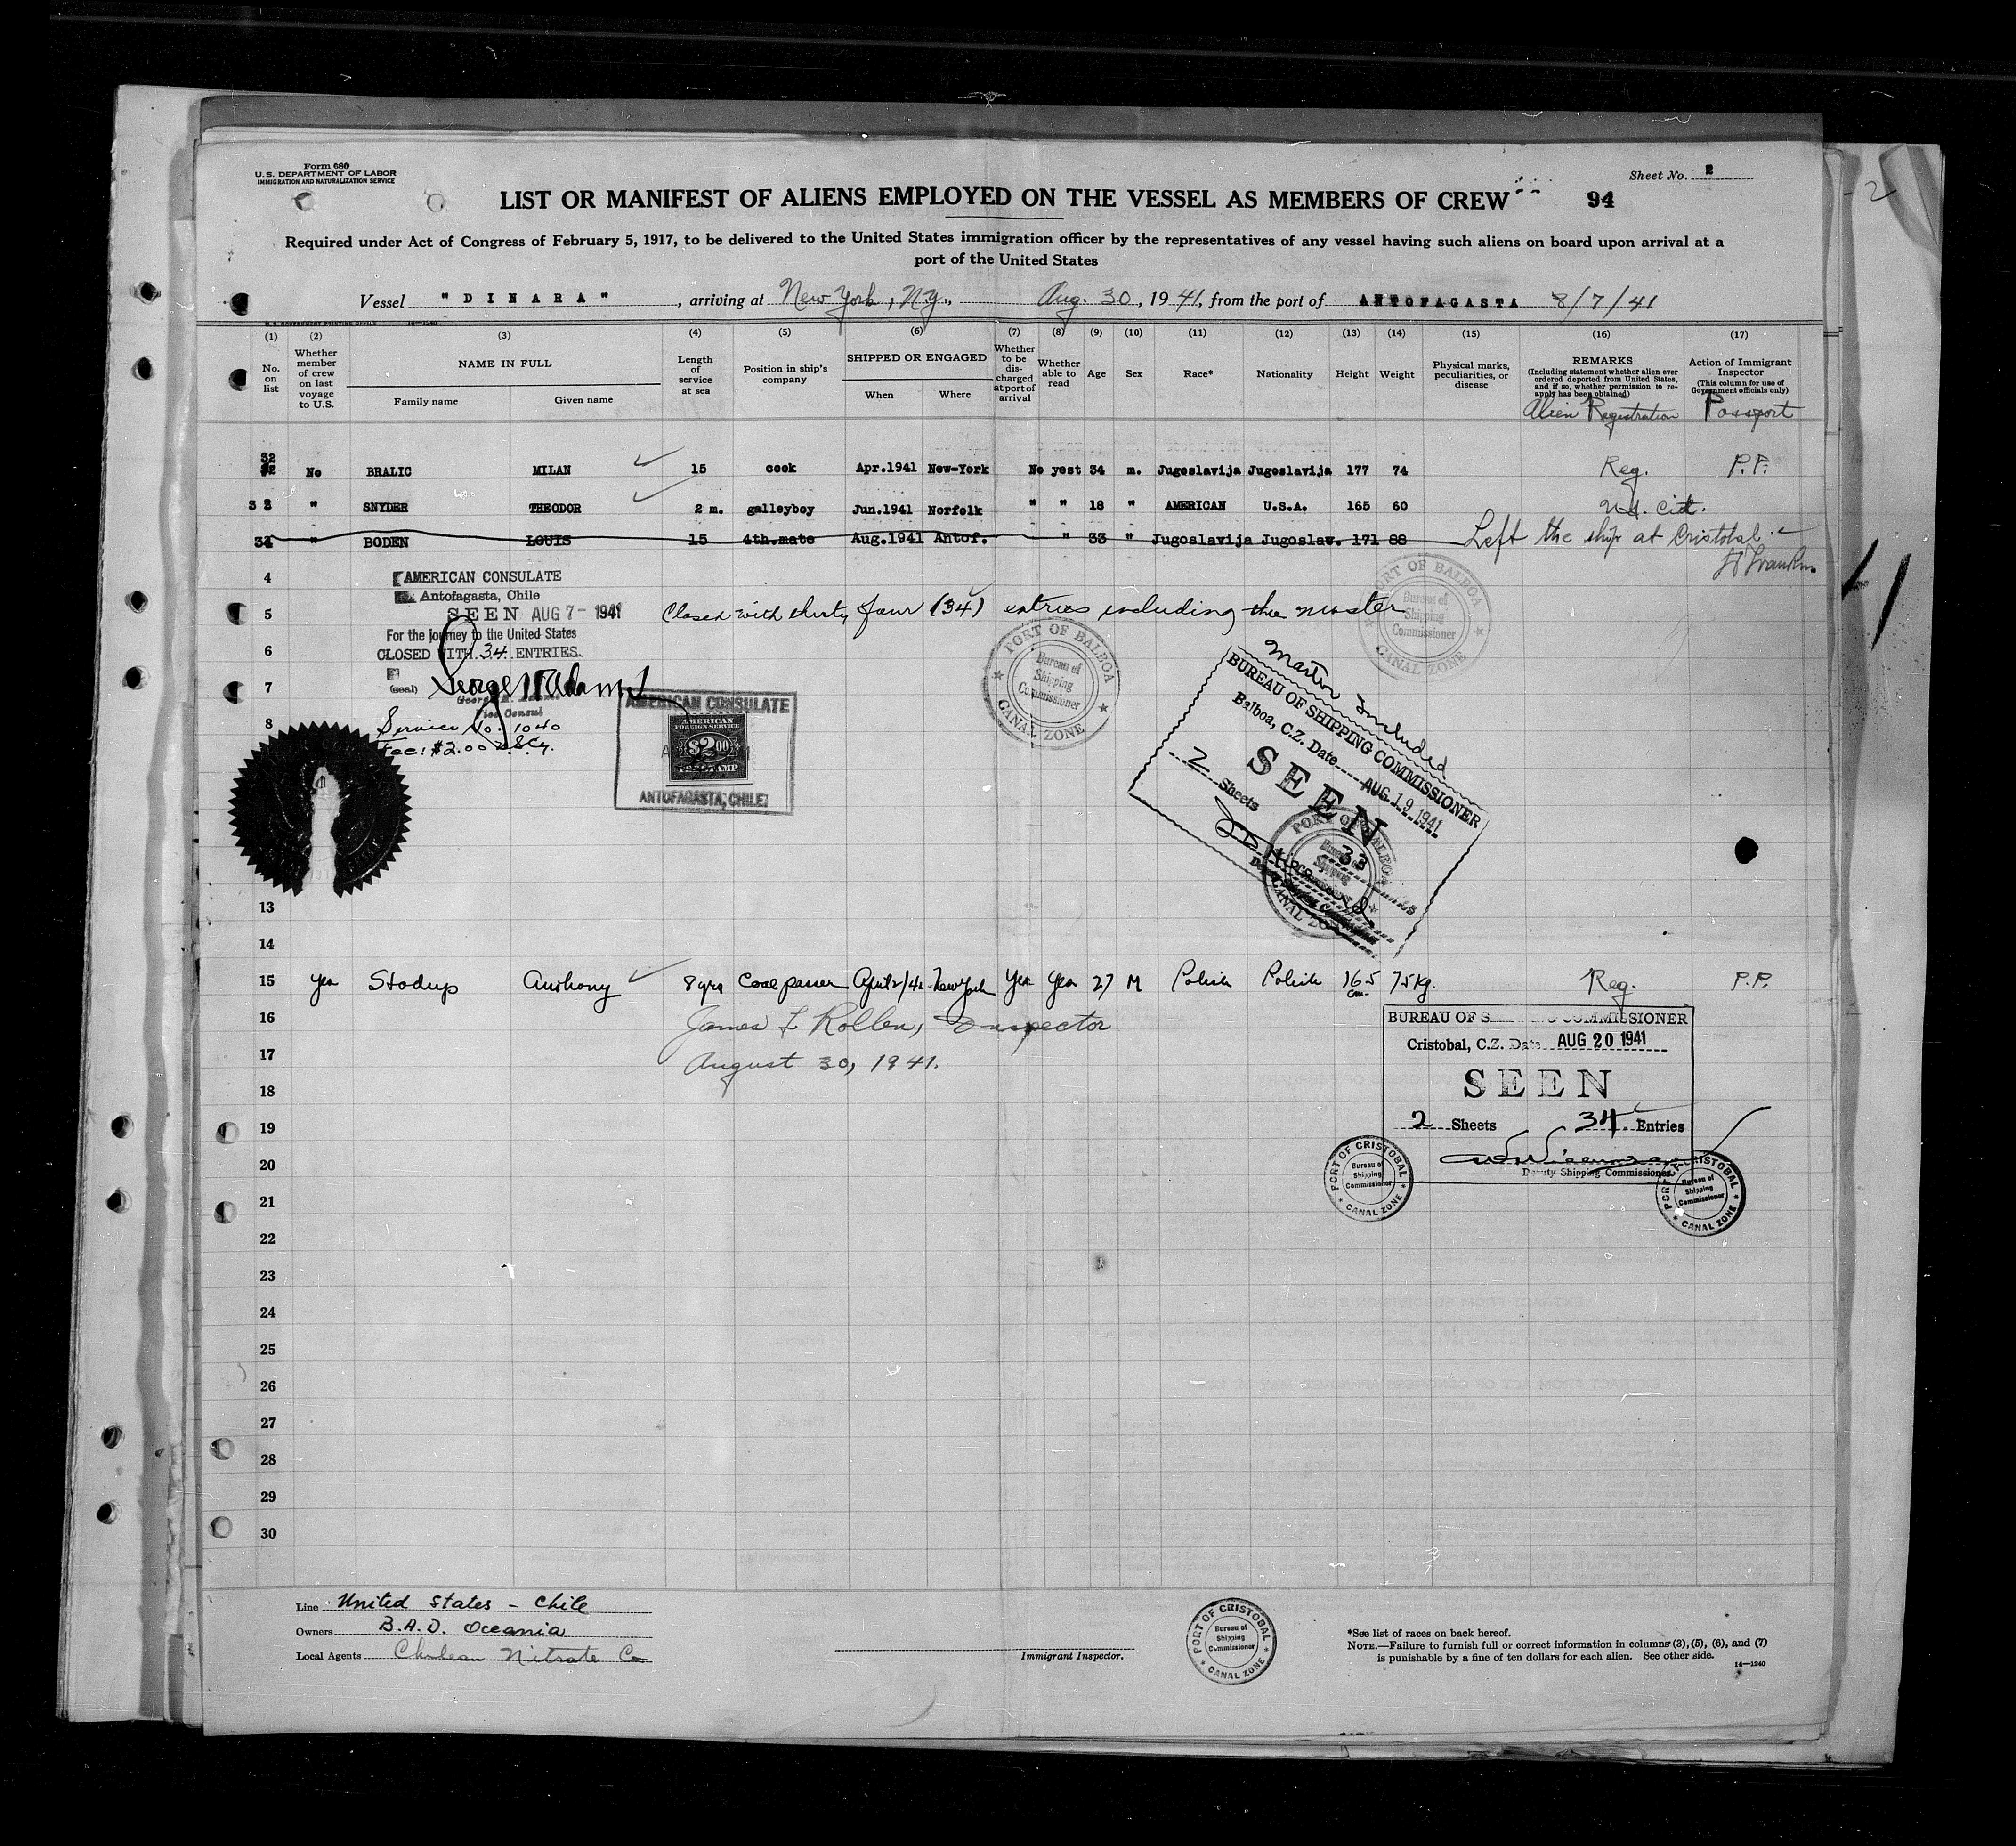 Form 680
U.S. DEPARTMENT OF LABOR
IMMIGRATION AND NATURALIZATION SERVICE
Sheet No. 2
LIST OR MANIFEST OF ALIENS EMPLOYED ON THE VESSEL AS MEMBERS OF CREW 94
Required under Act of Congress of February 5, 1917, to be delivered to the United States immigration officer by the representatives of any vessel having such aliens on board upon arrival at a
port of the United States
Vessel "DINARA", arriving at New York, N.Y., Aug. 30, 1941, from the port of ANTOFAGASTA 8/7/41
(1) (2) (3) (4) (5) (6) (7) (8) (9) (10) (11) (12) (13) (14) (15) (16) (17)
No. on list
Whether member of crew on last voyage to U.S.
NAME IN FULL
Family name Given name
Length of service at sea
Position in ship's company
SHIPPED OR ENGAGED
When Where
Whether to be discharged at port of arrival
Whether able to read
Age
Sex
Race*
Nationality
Height
Weight
Physical marks, peculiarities, or disease
REMARKS
(Including statement whether alien ever ordered deported from United States, and if so, whether permission to reapply has been obtained)
Alien Registration
Action of Immigrant Inspector
(This column for use of Government officials only)
Passport
32 No BRALIC MILAN 15 cook Apr.1941 New-York No yest 34 m. Jugoslavija Jugoslavija 177 74 Reg. P.P.
33 " SNYDER THEODOR 2 m. galleyboy Jun.1941 Norfolk " " 18 " AMERICAN U.S.A. 165 60 Cit.
34 " BODEN LOUIS 15 4th.mate Aug.1941 Antof. " 33 " Jugoslavija Jugoslav. 171 88 Left the ship at Cristobal
4
AMERICAN CONSULATE
Antofagasta, Chile
5
SEEN AUG 7- 1941
Closed with thirty four (34) entries including the master
For the journey to the United States
6
CLOSED WITH 34 ENTRIES.
7
(seal) George Adams
Vice Consul
8
Service No. 1040
Fee: $2.00
AMERICAN CONSULATE
AMERICAN
FOREIGN SERVICE
$2.00
FEE STAMP
ANTOFAGASTA, CHILE
PORT OF BALBOA
Bureau of Shipping Commissioner
CANAL ZONE
PORT OF BALBOA
Bureau of Shipping Commissioner
CANAL ZONE
Master Included
BUREAU OF SHIPPING COMMISSIONER
Balboa, C.Z. Date AUG. 19 1941
SEEN
2 Sheets 33
PORT OF BALBOA
CANAL ZONE
13
14
15 Yes Stodup Anthony 8 yrs Coal passer April 2/41 New York Yes Yes 27 M Polish Polish 165 cm. 75 kg. Reg. P.P.
16 James L Rollen, Inspector
17 August 30, 1941.
18
19
20
21
22
23
24
25
26
27
28
29
30
BUREAU OF S COMMISSIONER
Cristobal, C.Z. Date AUG 20 1941
SEEN
2 Sheets 34 Entries
Deputy Shipping Commissioner
PORT OF CRISTOBAL
Bureau of Shipping Commissioner
CANAL ZONE
PORT OF CRISTOBAL
Bureau of Shipping Commissioner
CANAL ZONE
Line United States - Chile
Owners B.A.D. Oceania
Local Agents Chilean Nitrate Co
Immigrant Inspector.
PORT OF CRISTOBAL
Bureau of Shipping Commissioner
CANAL ZONE
*See list of races on back hereof.
NOTE.—Failure to furnish full or correct information in columns (3), (5), (6), and (7)
is punishable by a fine of ten dollars for each alien. See other side.
14—1240